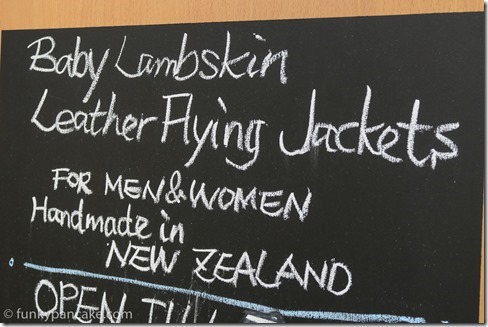 Baby Lambskin
Leather Flying Jackets
FOR MEN & WOMEN
Handmade in
NEW ZEALAND
OPEN TILL
© funkypancake.com